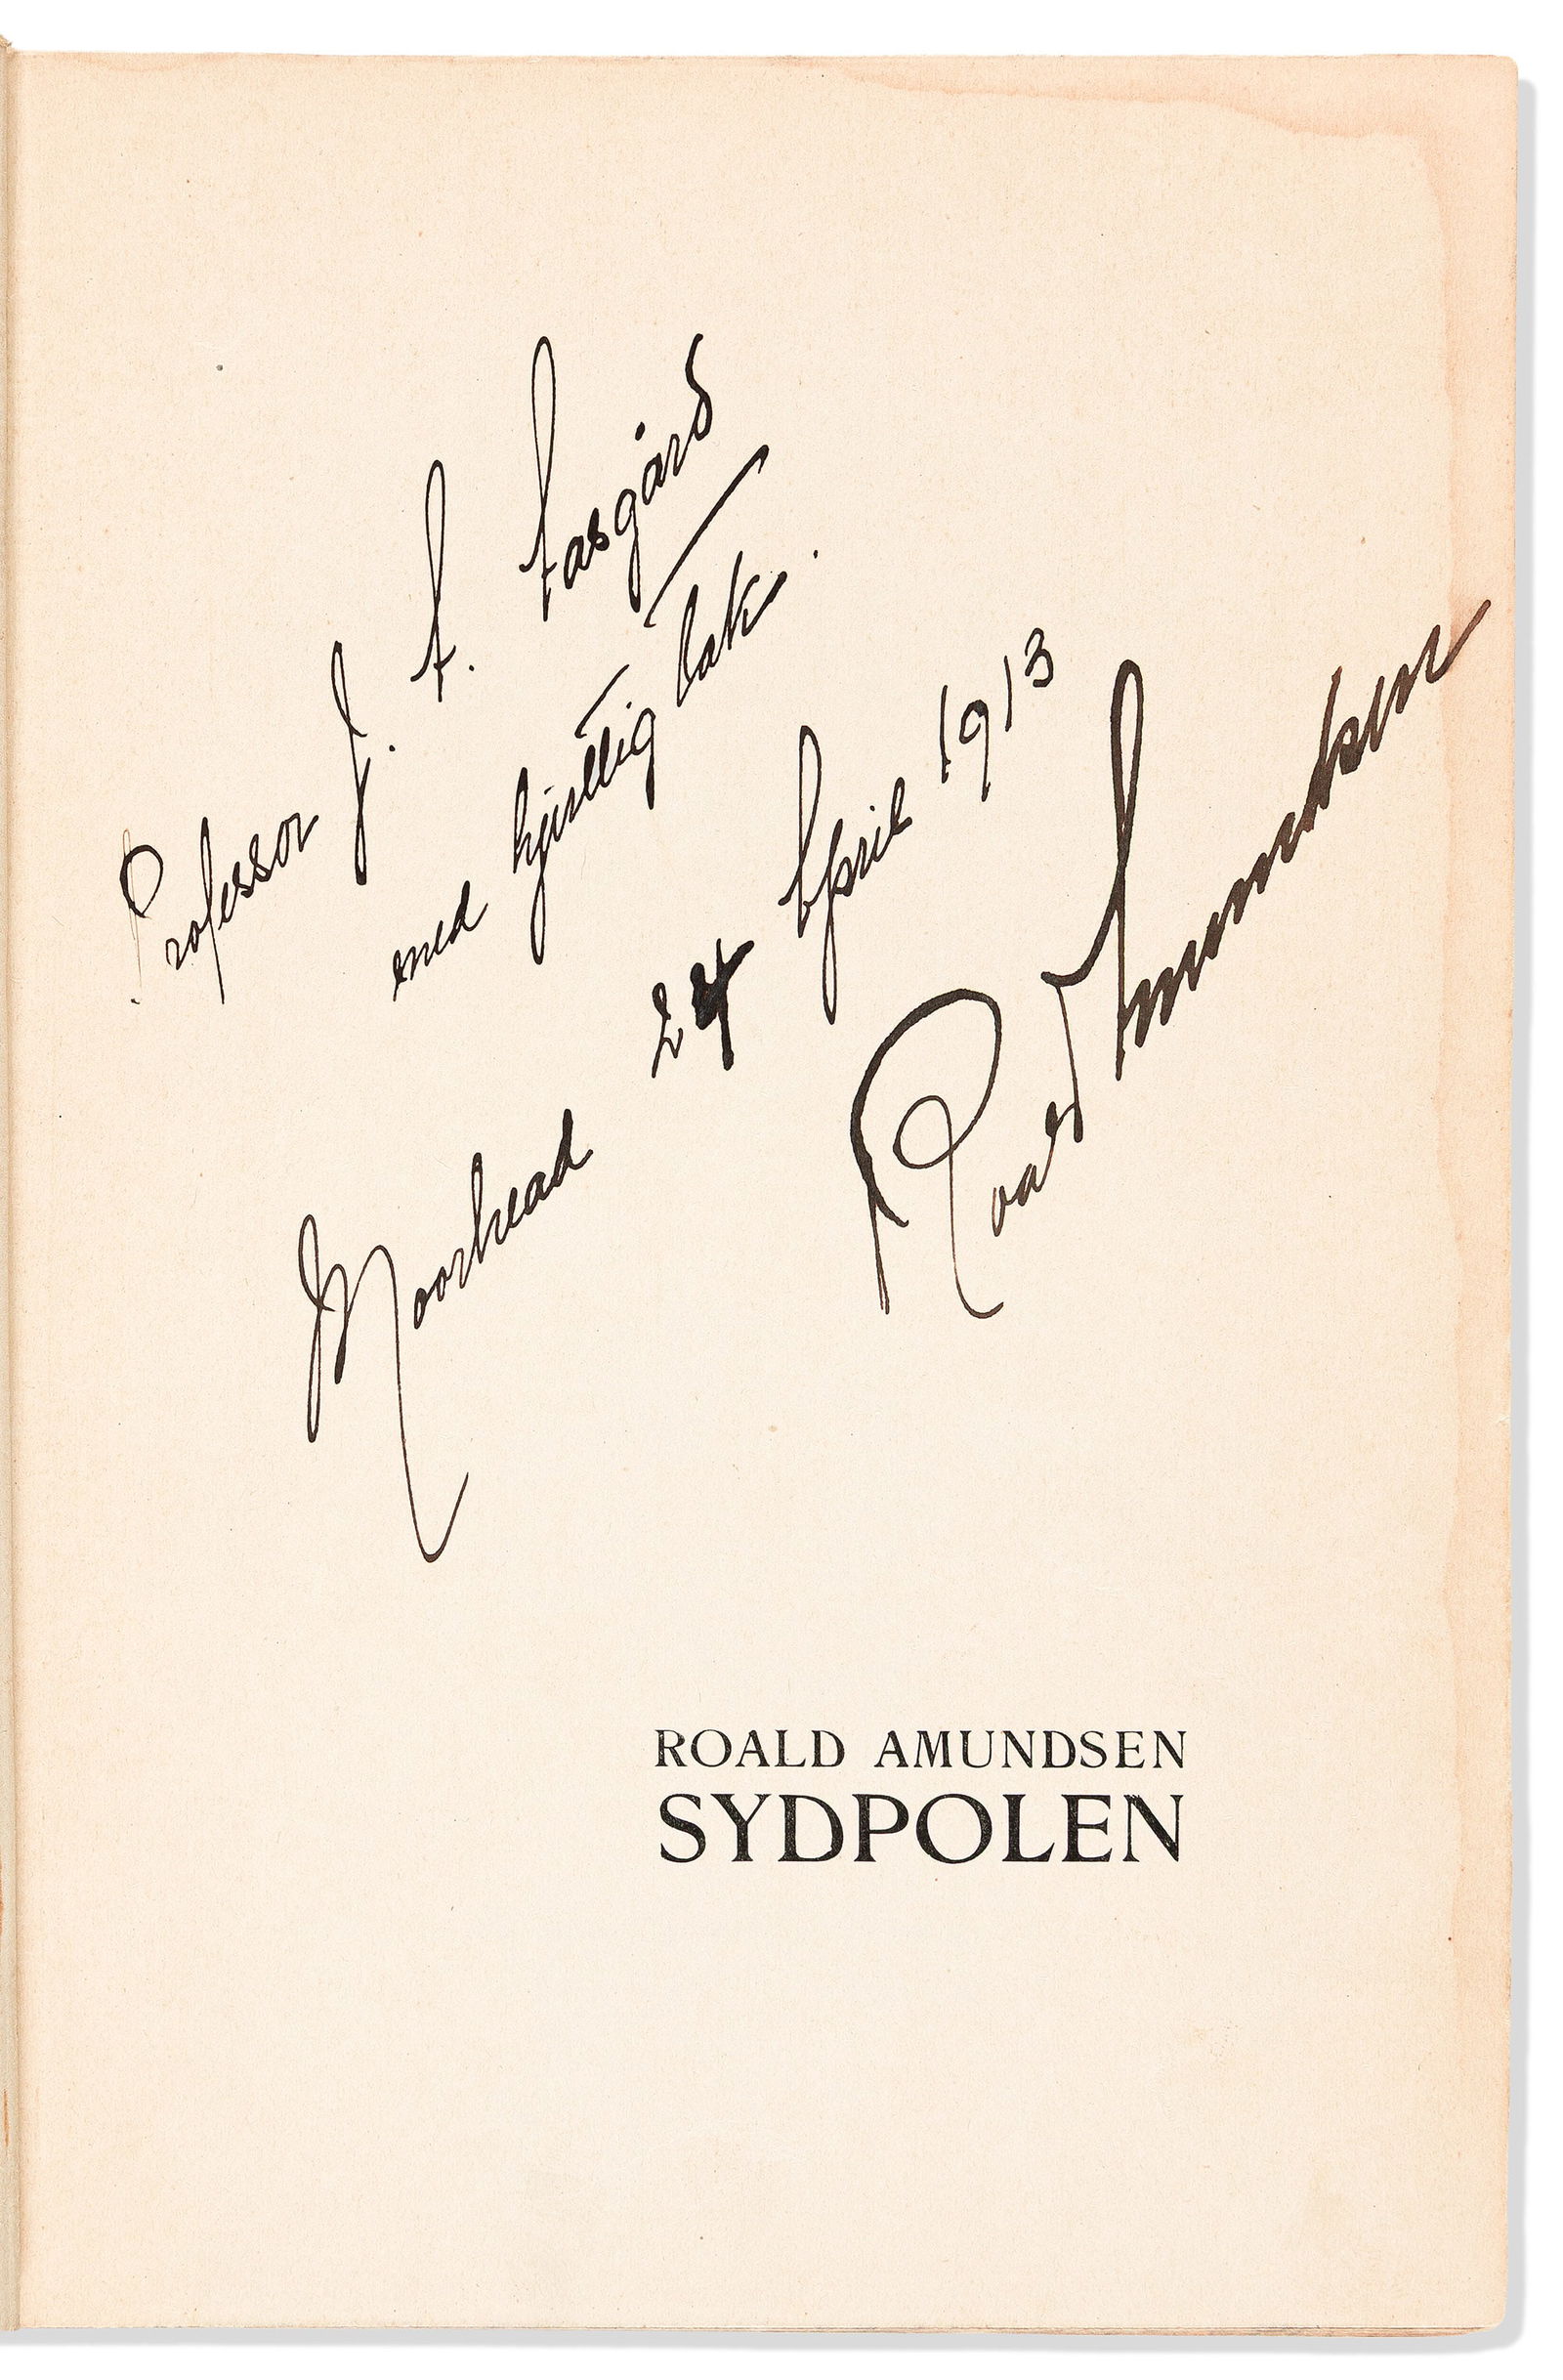 Professor J. A. Aasgård
med hjertlig tak.
Moorhead 24 April 1913
Roald Amundsen
ROALD AMUNDSEN
SYDPOLEN